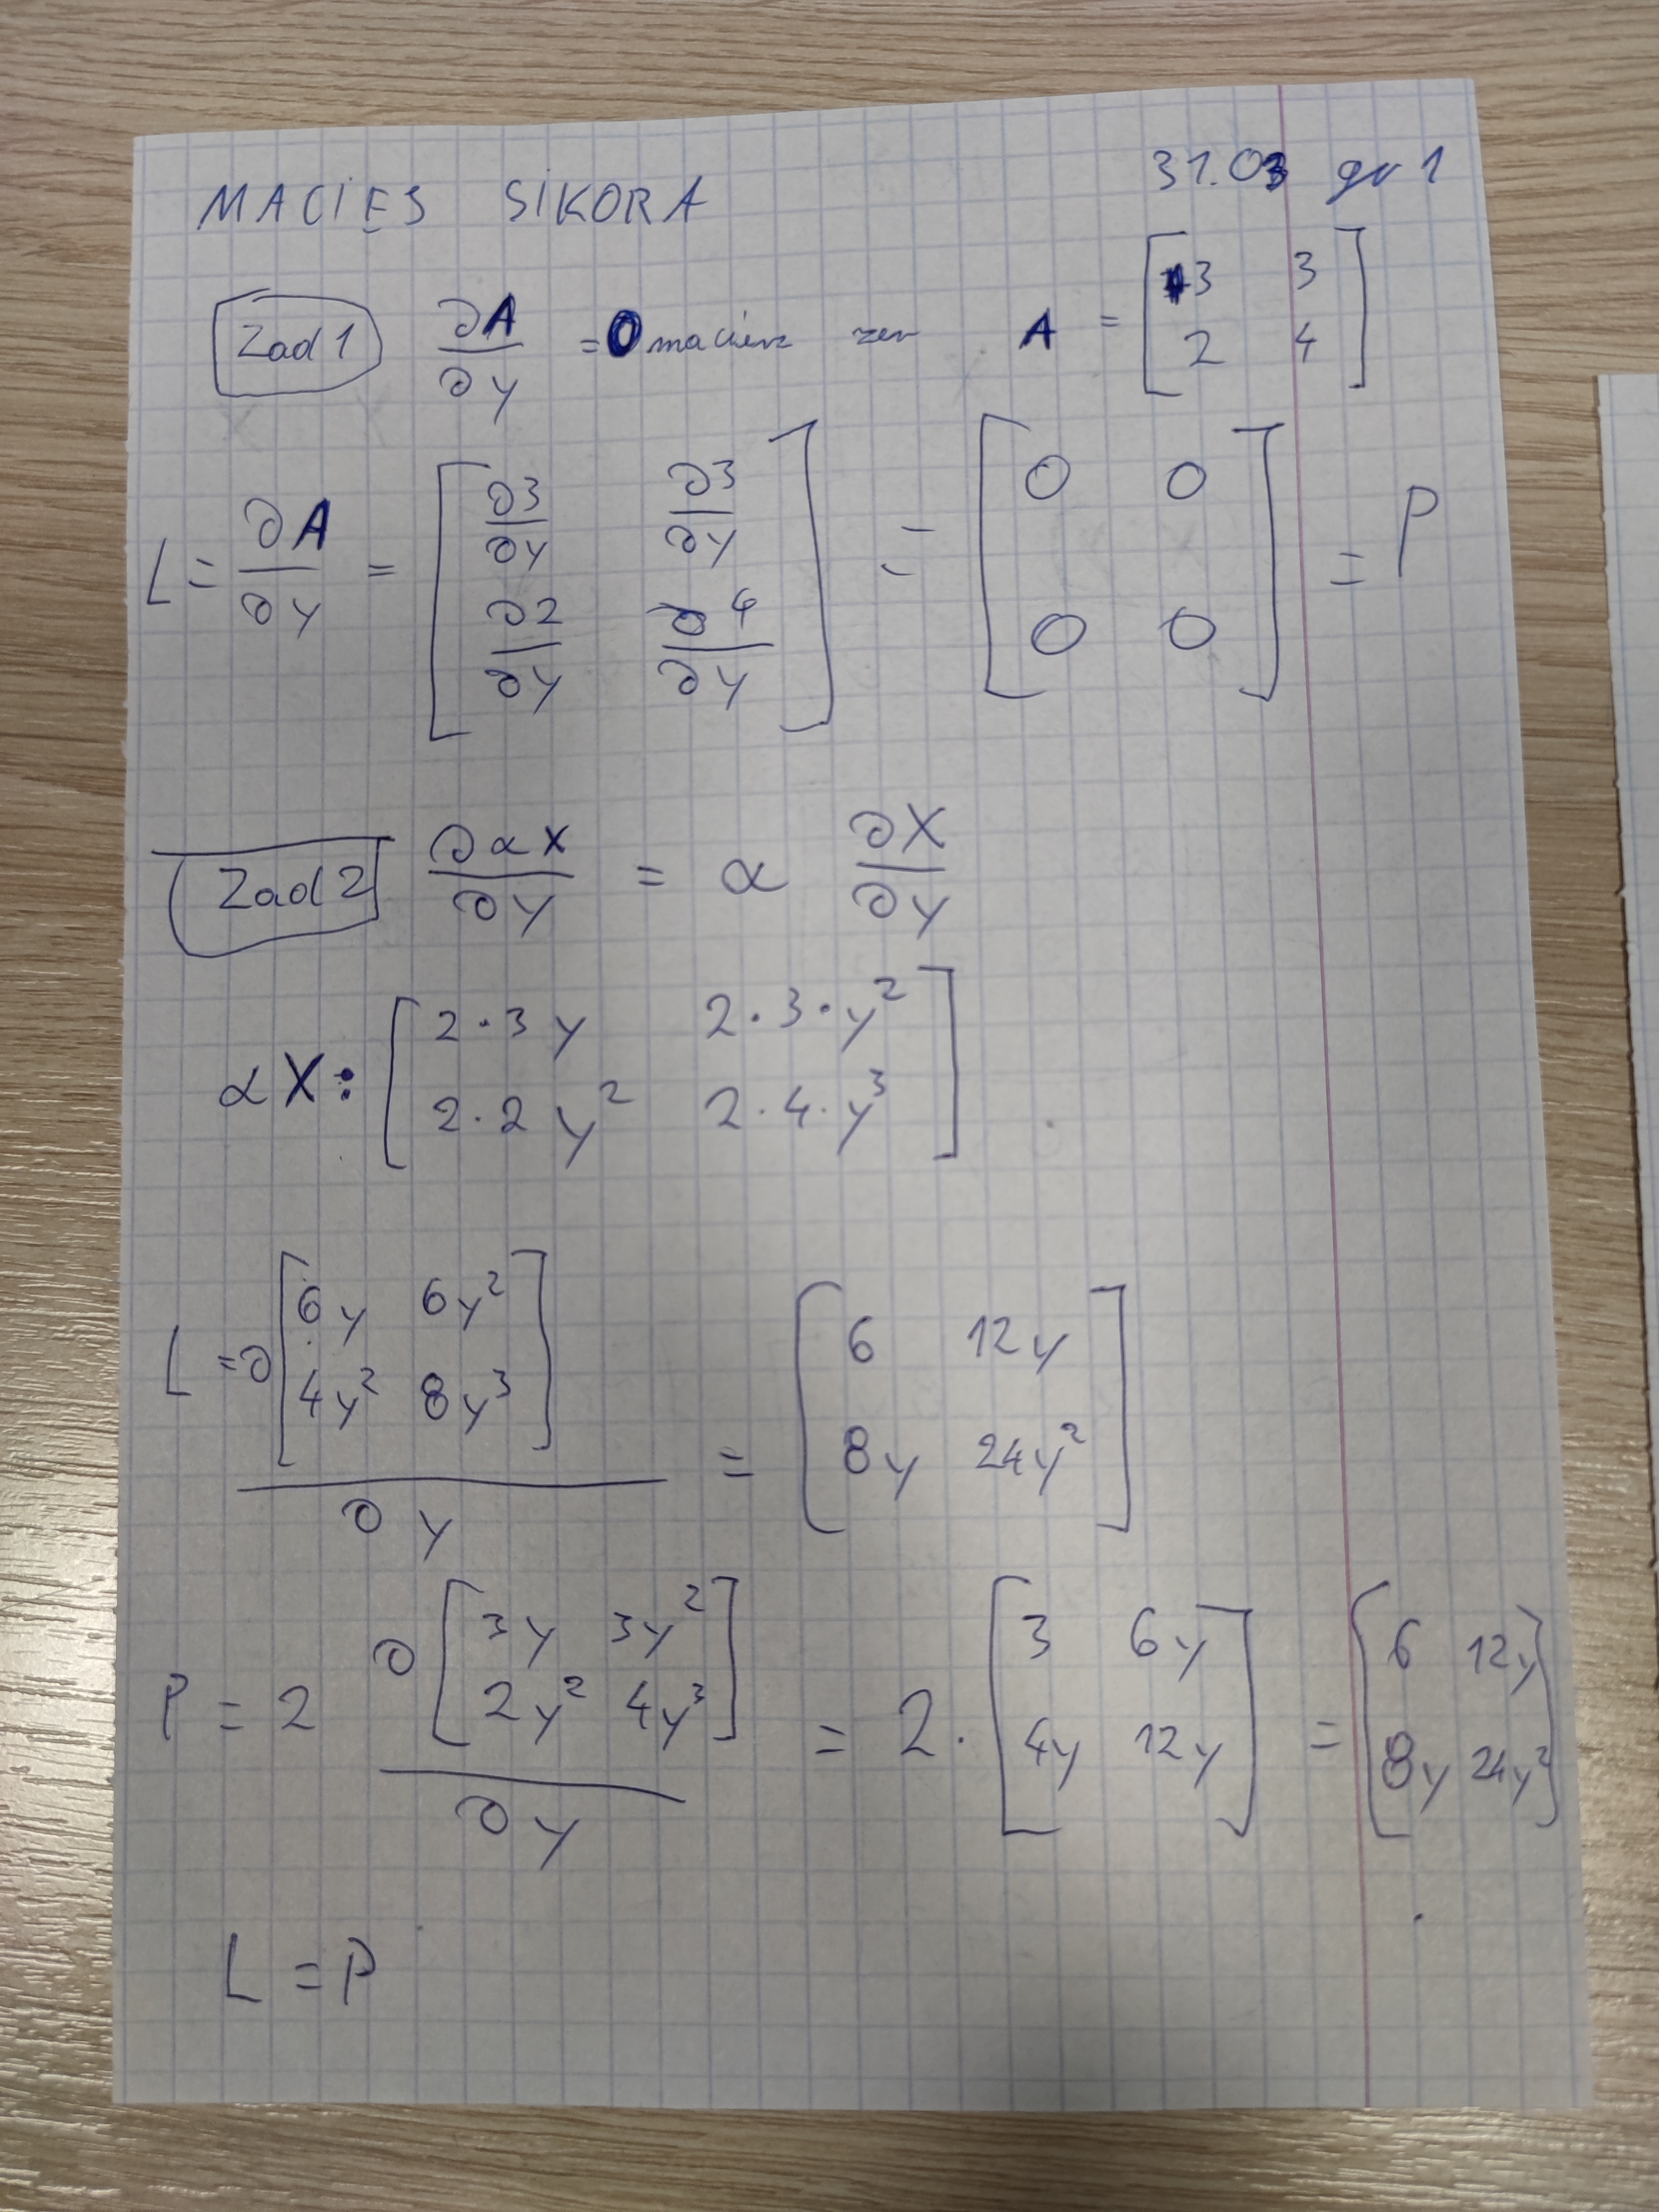 MACIEJ SIKORA 31.03 gr 1
Zad 1 ∂A/∂y = 0 macierz zer A = [3 3; 2 4]
L = ∂A/∂y = [∂3/∂y ∂3/∂y; ∂2/∂y ∂4/∂y] = [0 0; 0 0] = P
Zad 2 ∂αX/∂y = α ∂X/∂y
αX: [2·3y 2·3·y²; 2·2y² 2·4·y³]
L = ∂[6y 6y²; 4y² 8y³]/∂y = [6 12y; 8y 24y²]
P = 2 ∂[3y 3y²; 2y² 4y³]/∂y = 2·[3 6y; 4y 12y] = [6 12y; 8y 24y²]
L = P